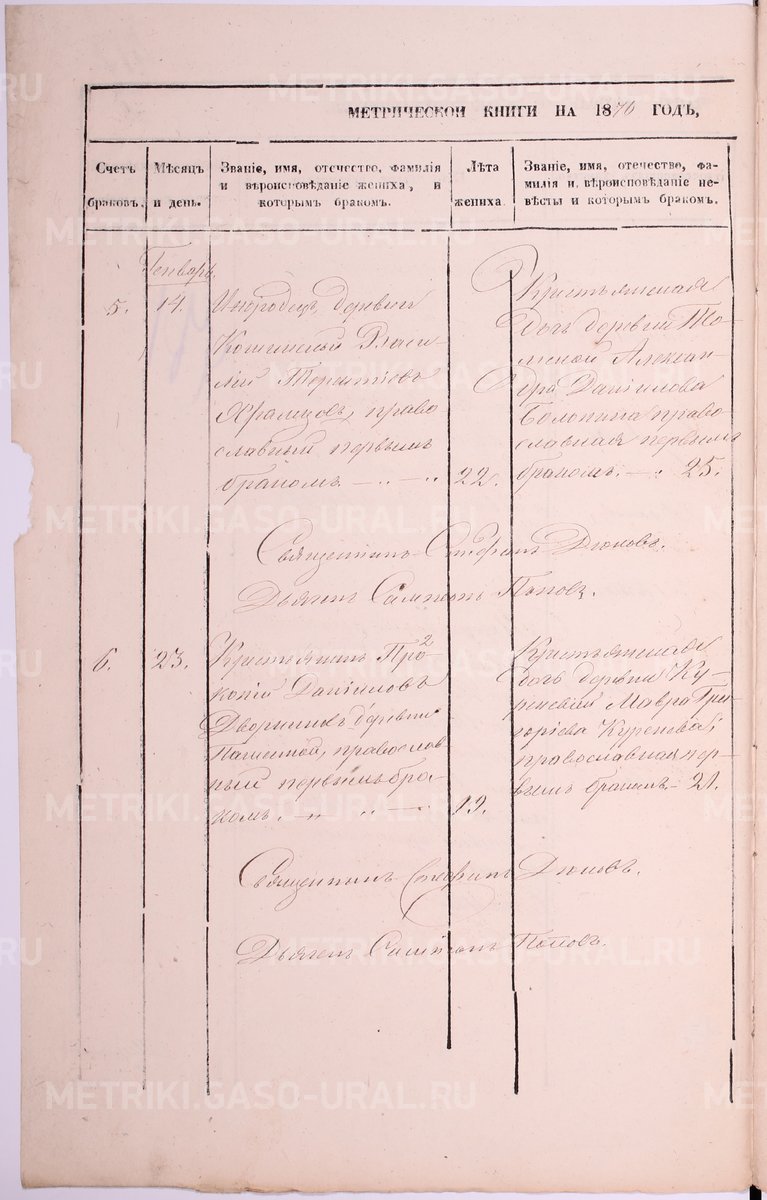 МЕТРИЧЕСКОЙ КНИГИ НА 1870 ГОДЪ,
Счетъ
браковъ.
Мѣсяцъ
и день.
Званіе, имя, отечество, фамилія
и вѣроисповѣданіе жениха, и
которымъ бракомъ.
Лѣта
жениха.
Званіе, имя, отечество, фа-
милія и вѣроисповѣданіе не-
вѣсты и которымъ бракомъ.
Генварь
5.
14.
Инородецъ деревни
Терентіевъ
Храмцовъ, право
славный первымъ
бракомъ
22.
Крестьянская
дочь деревни
Алексан-
дра Даніилова
право-
славная первымъ
бракомъ. 25.
Священникъ Стефанъ
Дьяконъ Сампсонъ Поповъ.
6.
23.
Крестьянинъ Про-
копій Даніиловъ
Дворниковъ деревни
православ
ный первымъ бра-
комъ.
19.
Крестьянская
дочь деревни Ку-
Мавра Гри-
горіева
православная пер-
вымъ бракомъ. 21.
Священникъ Стефанъ
Дьяконъ Сампсонъ Поповъ.
METRIKI.GASO-URAL.RU